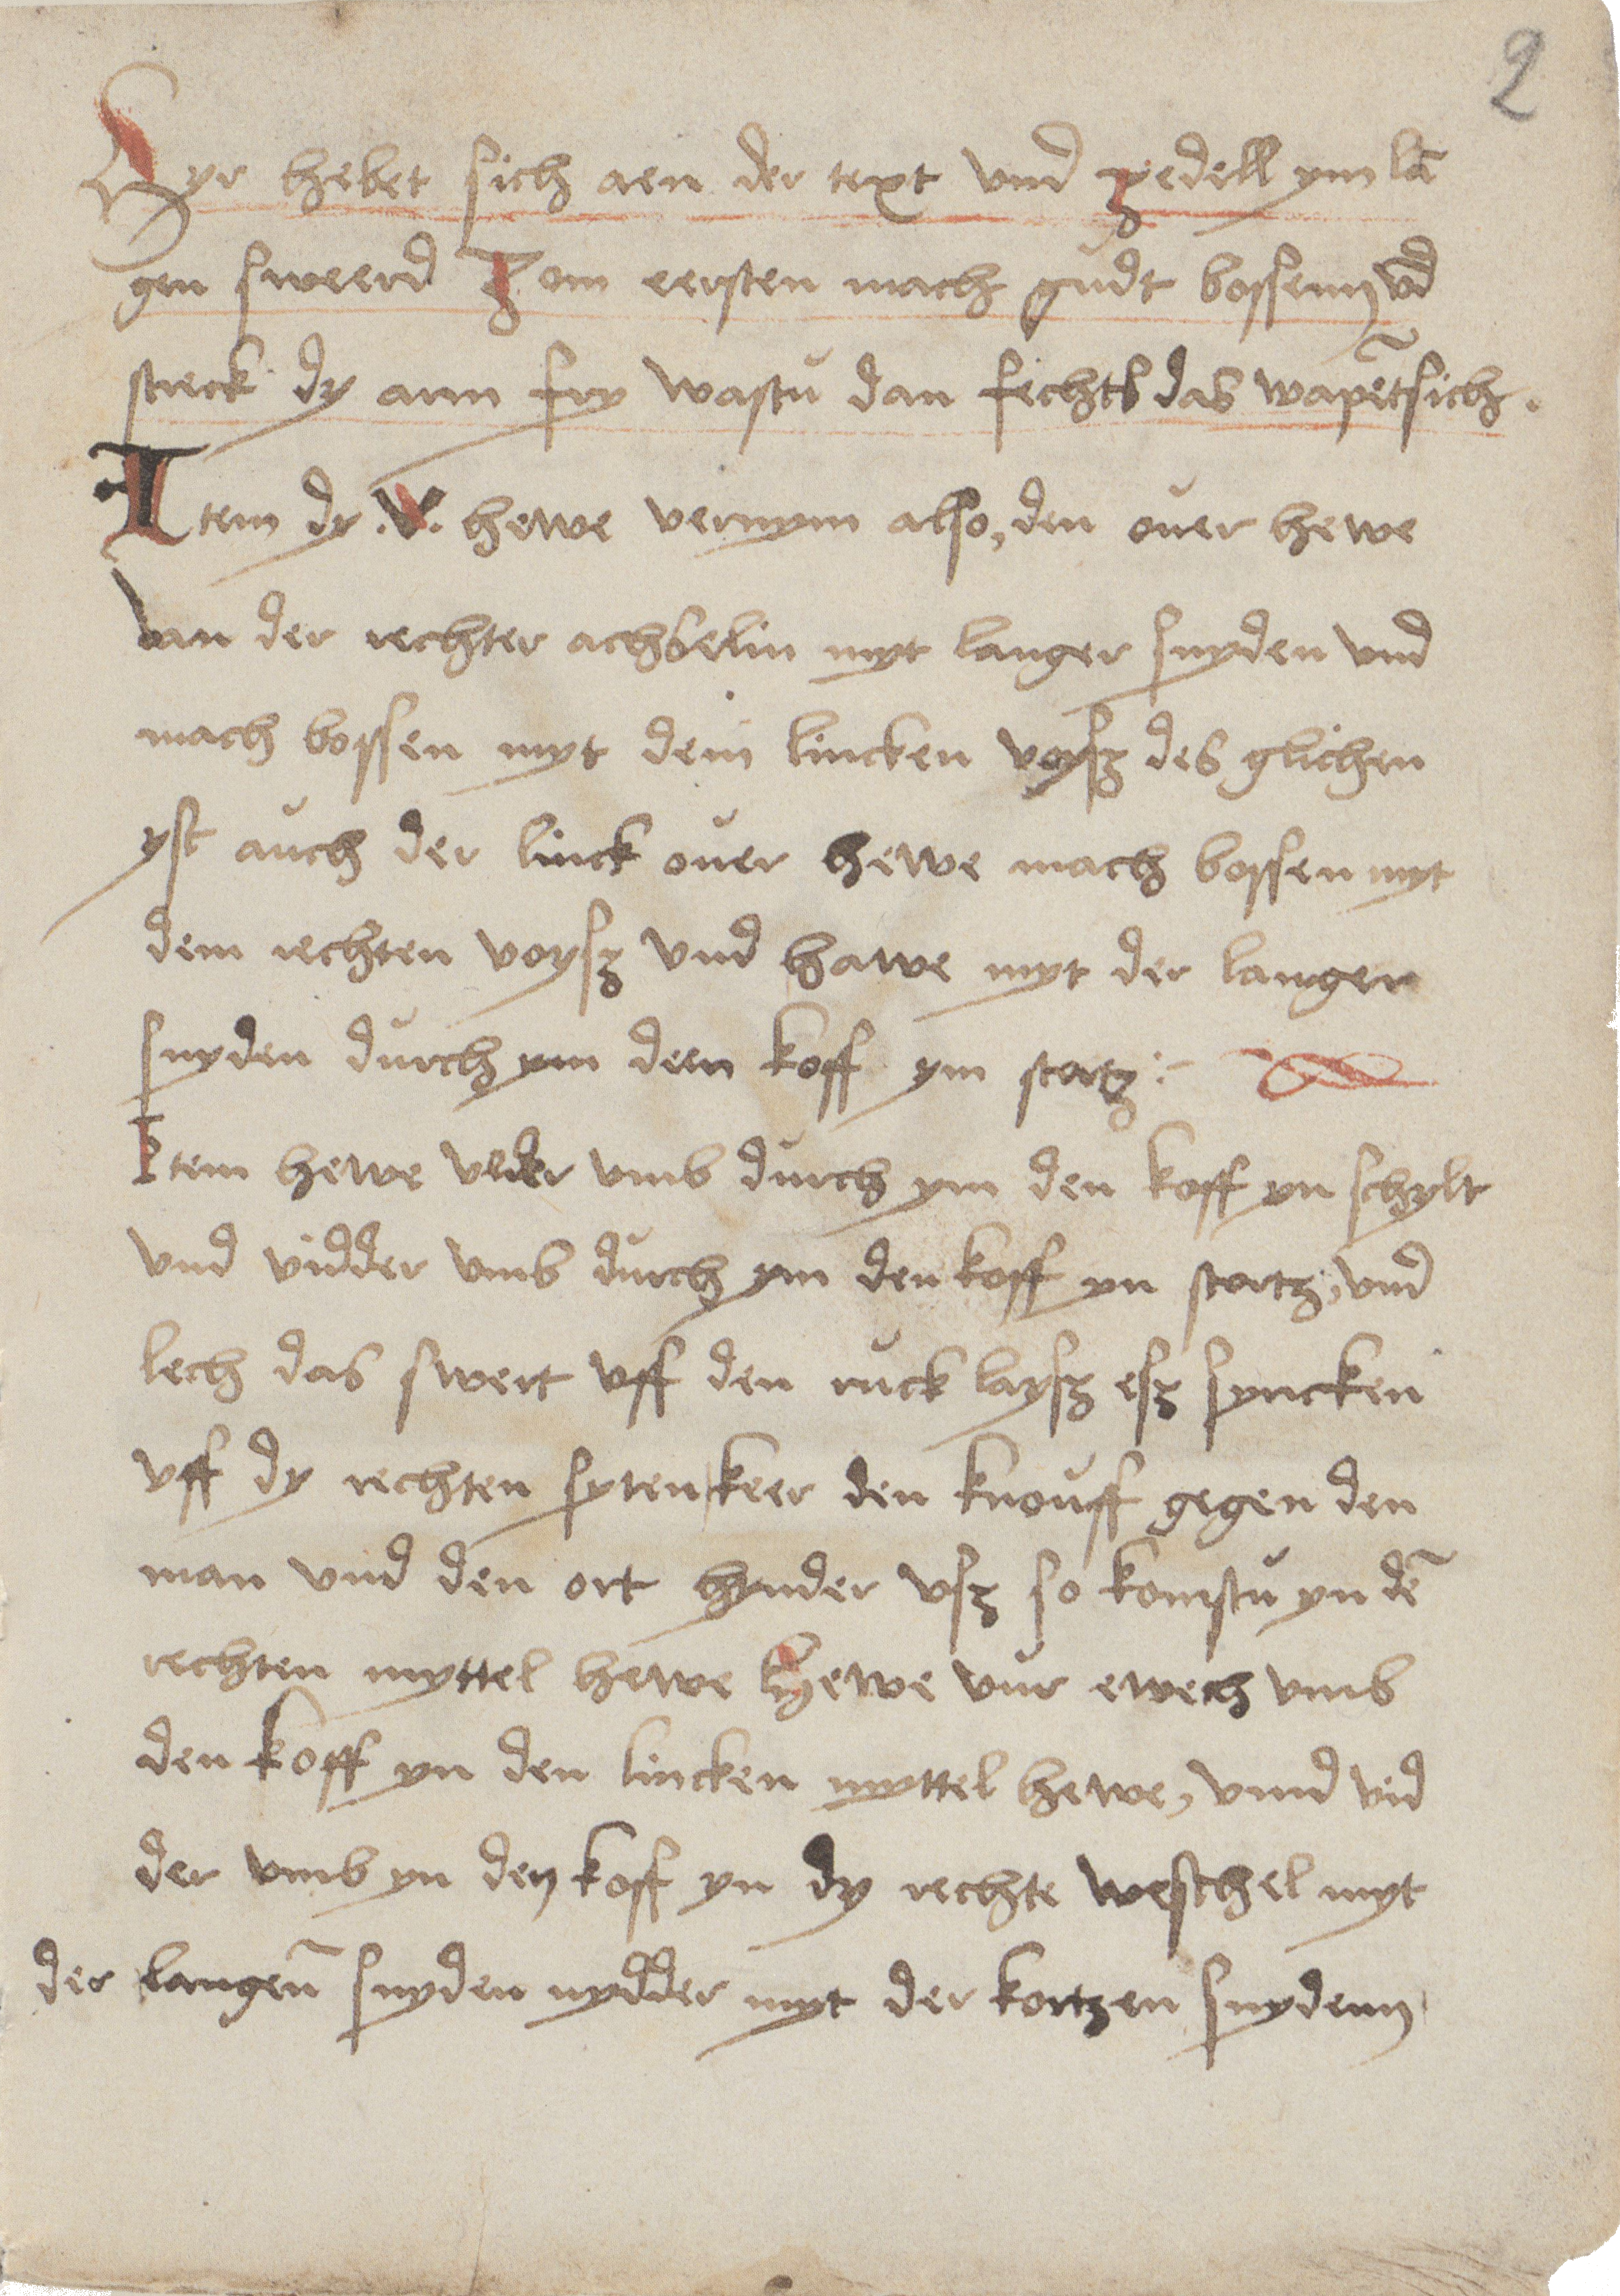 2
Hyr hebet sich aen der text vnd zedell ym lā
gen sweerd Zom eersten mach gudt bossenn vd̄
streck dy arm fry wastu dan fechts das wapēt sich.
Item dy .V. hewe vernym also, den ouer hewe
van der rechter achselin myt langer snyden vnd
mach bossen myt dem lincken voysz des glichen
yst auch der linck ouer hewe mach bossen myt
dem rechten voysz vnd hawe myt der langer
snyden durch ym deen koff ym stortz :-
Item hewe vmb durch ym den koff yn schylt
vnd vidder vmb durch ym den koff yn stortz, vnd
lech das swert vff den ruck laysz esz syncken
vff dy rechten syten keer den knouff gegen den
man vnd den ort hynder vsz so komstu yn dē
rechten myttel hewe Hewe vur ewech vmb
den koff yn den lincken myttel hewe, vnnd vid
der vmb yn den koff yn dy rechte weschel myt
der langen̄ snyden nydder myt der kortzen snydenn